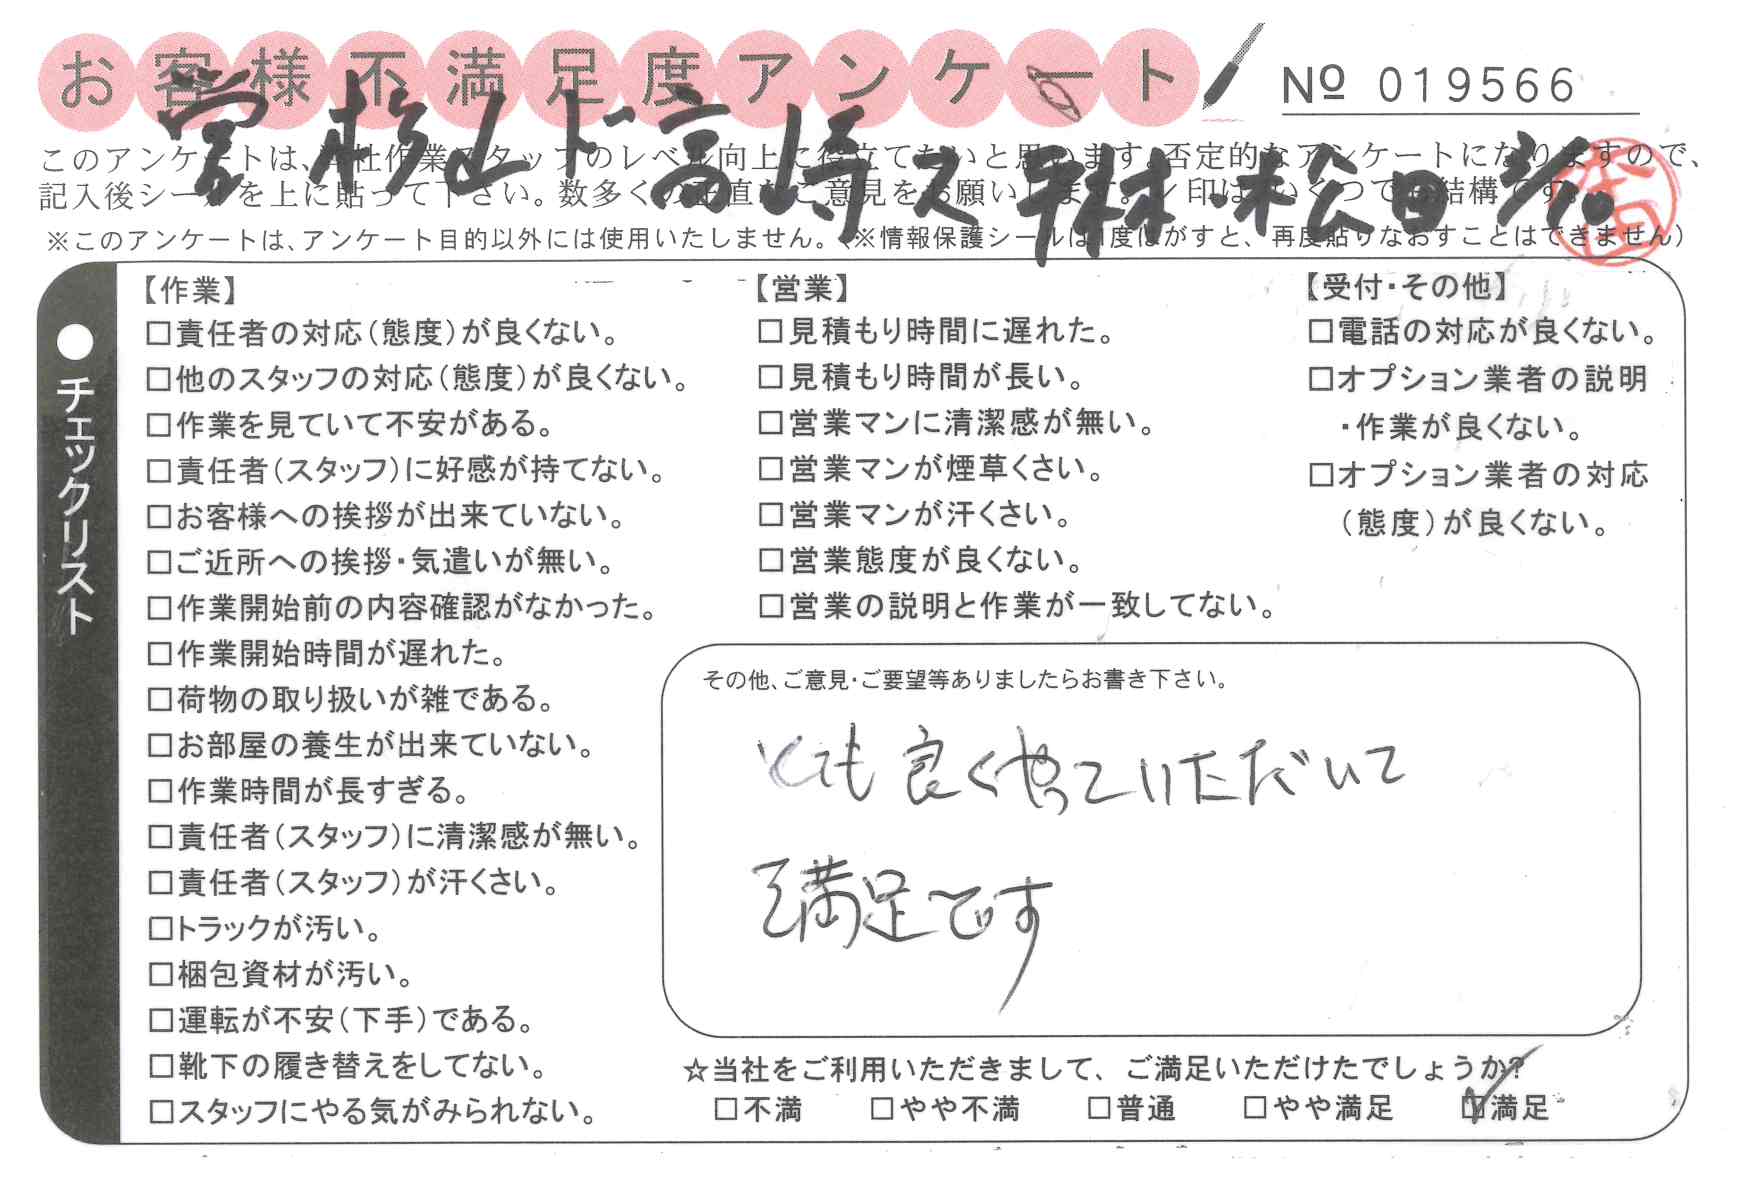 お客様不満足度アンケート
№ 019566
営 杉山 ド高崎 ス 林 松田
本田
このアンケートは、当社作業スタッフのレベル向上に役立てたいと思います。否定的なアンケートになりますので、
記入後シールを上に貼って下さい。数多くの正直なご意見をお願いします。✓印はいくつでも結構です。
※このアンケートは、アンケート目的以外には使用いたしません。(※情報保護シールは1度はがすと、再度貼りなおすことはできません)
●チェックリスト
【作業】
□責任者の対応(態度)が良くない。
□他のスタッフの対応(態度)が良くない。
□作業を見ていて不安がある。
□責任者(スタッフ)に好感が持てない。
□お客様への挨拶が出来ていない。
□ご近所への挨拶・気遣いが無い。
□作業開始前の内容確認がなかった。
□作業開始時間が遅れた。
□荷物の取り扱いが雑である。
□お部屋の養生が出来ていない。
□作業時間が長すぎる。
□責任者(スタッフ)に清潔感が無い。
□責任者(スタッフ)が汗くさい。
□トラックが汚い。
□梱包資材が汚い。
□運転が不安(下手)である。
□靴下の履き替えをしてない。
□スタッフにやる気がみられない。
【営業】
□見積もり時間に遅れた。
□見積もり時間が長い。
□営業マンに清潔感が無い。
□営業マンが煙草くさい。
□営業マンが汗くさい。
□営業態度が良くない。
□営業の説明と作業が一致してない。
【受付・その他】
□電話の対応が良くない。
□オプション業者の説明
・作業が良くない。
□オプション業者の対応
(態度)が良くない。
その他、ご意見・ご要望等ありましたらお書き下さい。
とても良くやっていただいて
満足です
☆当社をご利用いただきまして、ご満足いただけたでしょうか?
□不満 □やや不満 □普通 □やや満足 ☑満足